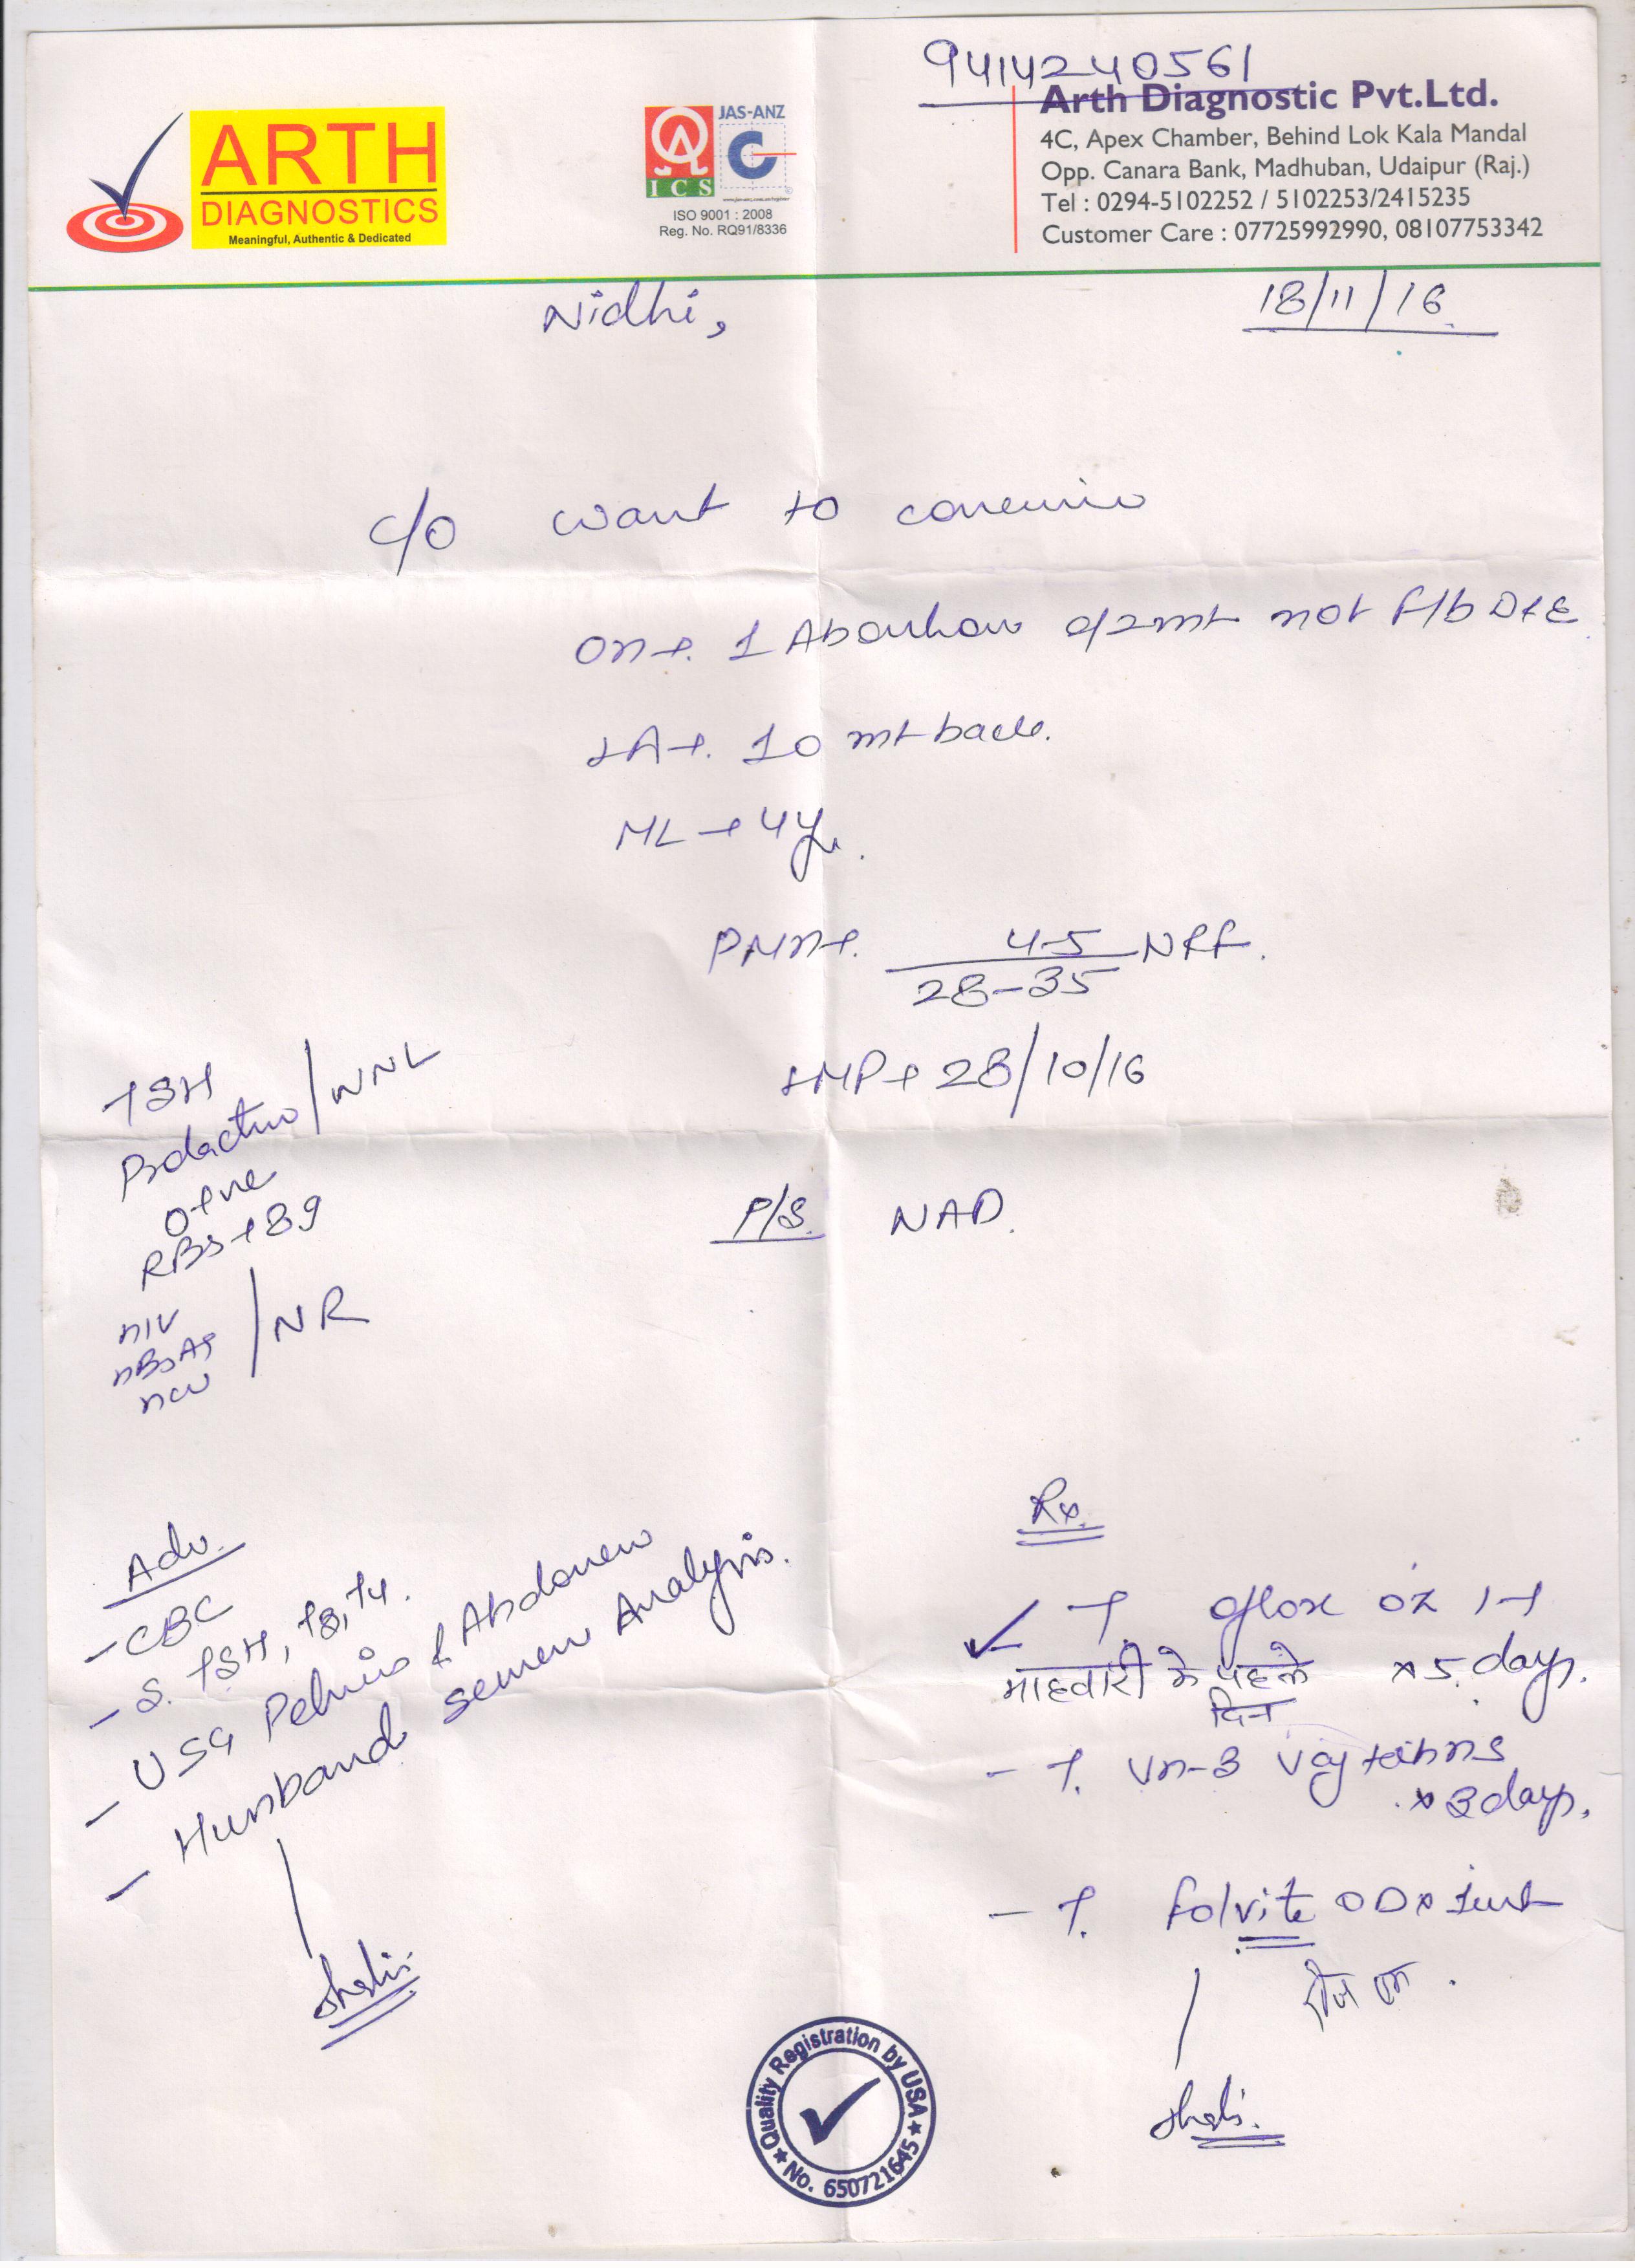 9414240561
ARTH
DIAGNOSTICS
Meaningful, Authentic & Dedicated
JAS-ANZ
ICS
ISO 9001 : 2008
Reg. No. RQ91/8336
Arth Diagnostic Pvt.Ltd.
4C, Apex Chamber, Behind Lok Kala Mandal
Opp. Canara Bank, Madhuban, Udaipur (Raj.)
Tel : 0294-5102252 / 5102253/2415235
Customer Care : 07725992990, 08107753342
Nidhi,
18/11/16
c/o want to conceive
1 Abortion of 2mt not f/b D&E
LA → 10 mt back.
ML → 4y
4-5
28-35 NFF.
LMP → 28/10/16
TSH
Prolactin / WNL
O+ve
RBS → 89
HIV
HBsAg / NR
HCV
P/S. NAD.
Adv.
- CBC
- S. TSH, T3, T4.
- USG Pelvis & Abdomen
- Husband semen Analysis.
Rx.
✓ T. oflox oz 1-1
माहवारी के पहले x 5 days.
दिन
- T. Vh-3 x 3 days.
- T. folvite OD x 1mt
रोज एक .
Quality Registration by USA
No. 650721645